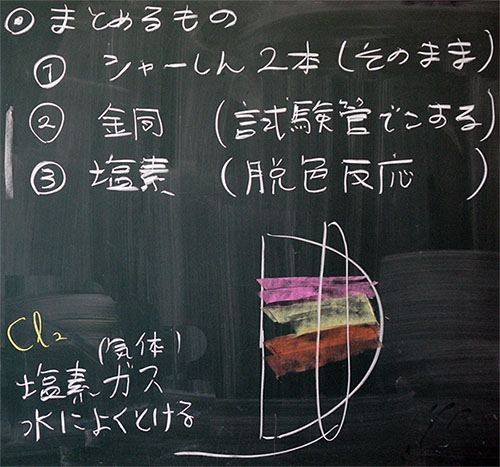 ⦿ まとめるもの
① シャーしん 2本 (そのまま)
② 銅 (試験管でこする)
③ 塩素 (脱色反応)
Cl₂
(気体)
塩素ガス
水によくとける